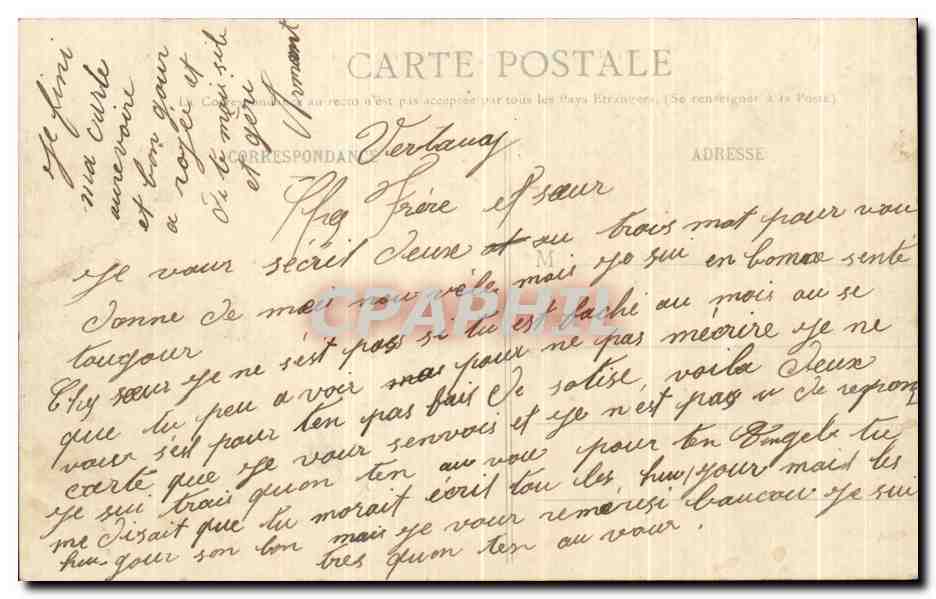 CARTE POSTALE
La Correspondance au recto n'est pas acceptée par tous les Pays Etrangers. (Se renseigner à la Poste)
CORRESPONDANCE
ADRESSE
M
Chy Frère et sœur
Je vour sécrit deux au trois mot pour vou
donne de mai nou vèle mais je sui en bonne senté
tougour
Chy sœur je ne sést pas si tu est faché au mois au se
que tu peu a voir pour ne pas mécrire je ne
vour sést pour ten pas fais de sotise, voila deux
carte que je vour senvois et je n'est pas u de repon
je sui trais quon ten au vou pour ten Engele tu
me disait que tu morait écrit tou les huu jour mais les
huu gour son bon mais je vour remérisi baucou je sui
tres quon ten au vour.
je fini
ma carte
aurevoire
et bon gour
a roger et
du temeusile
et geri
Armant
CPAPHIL